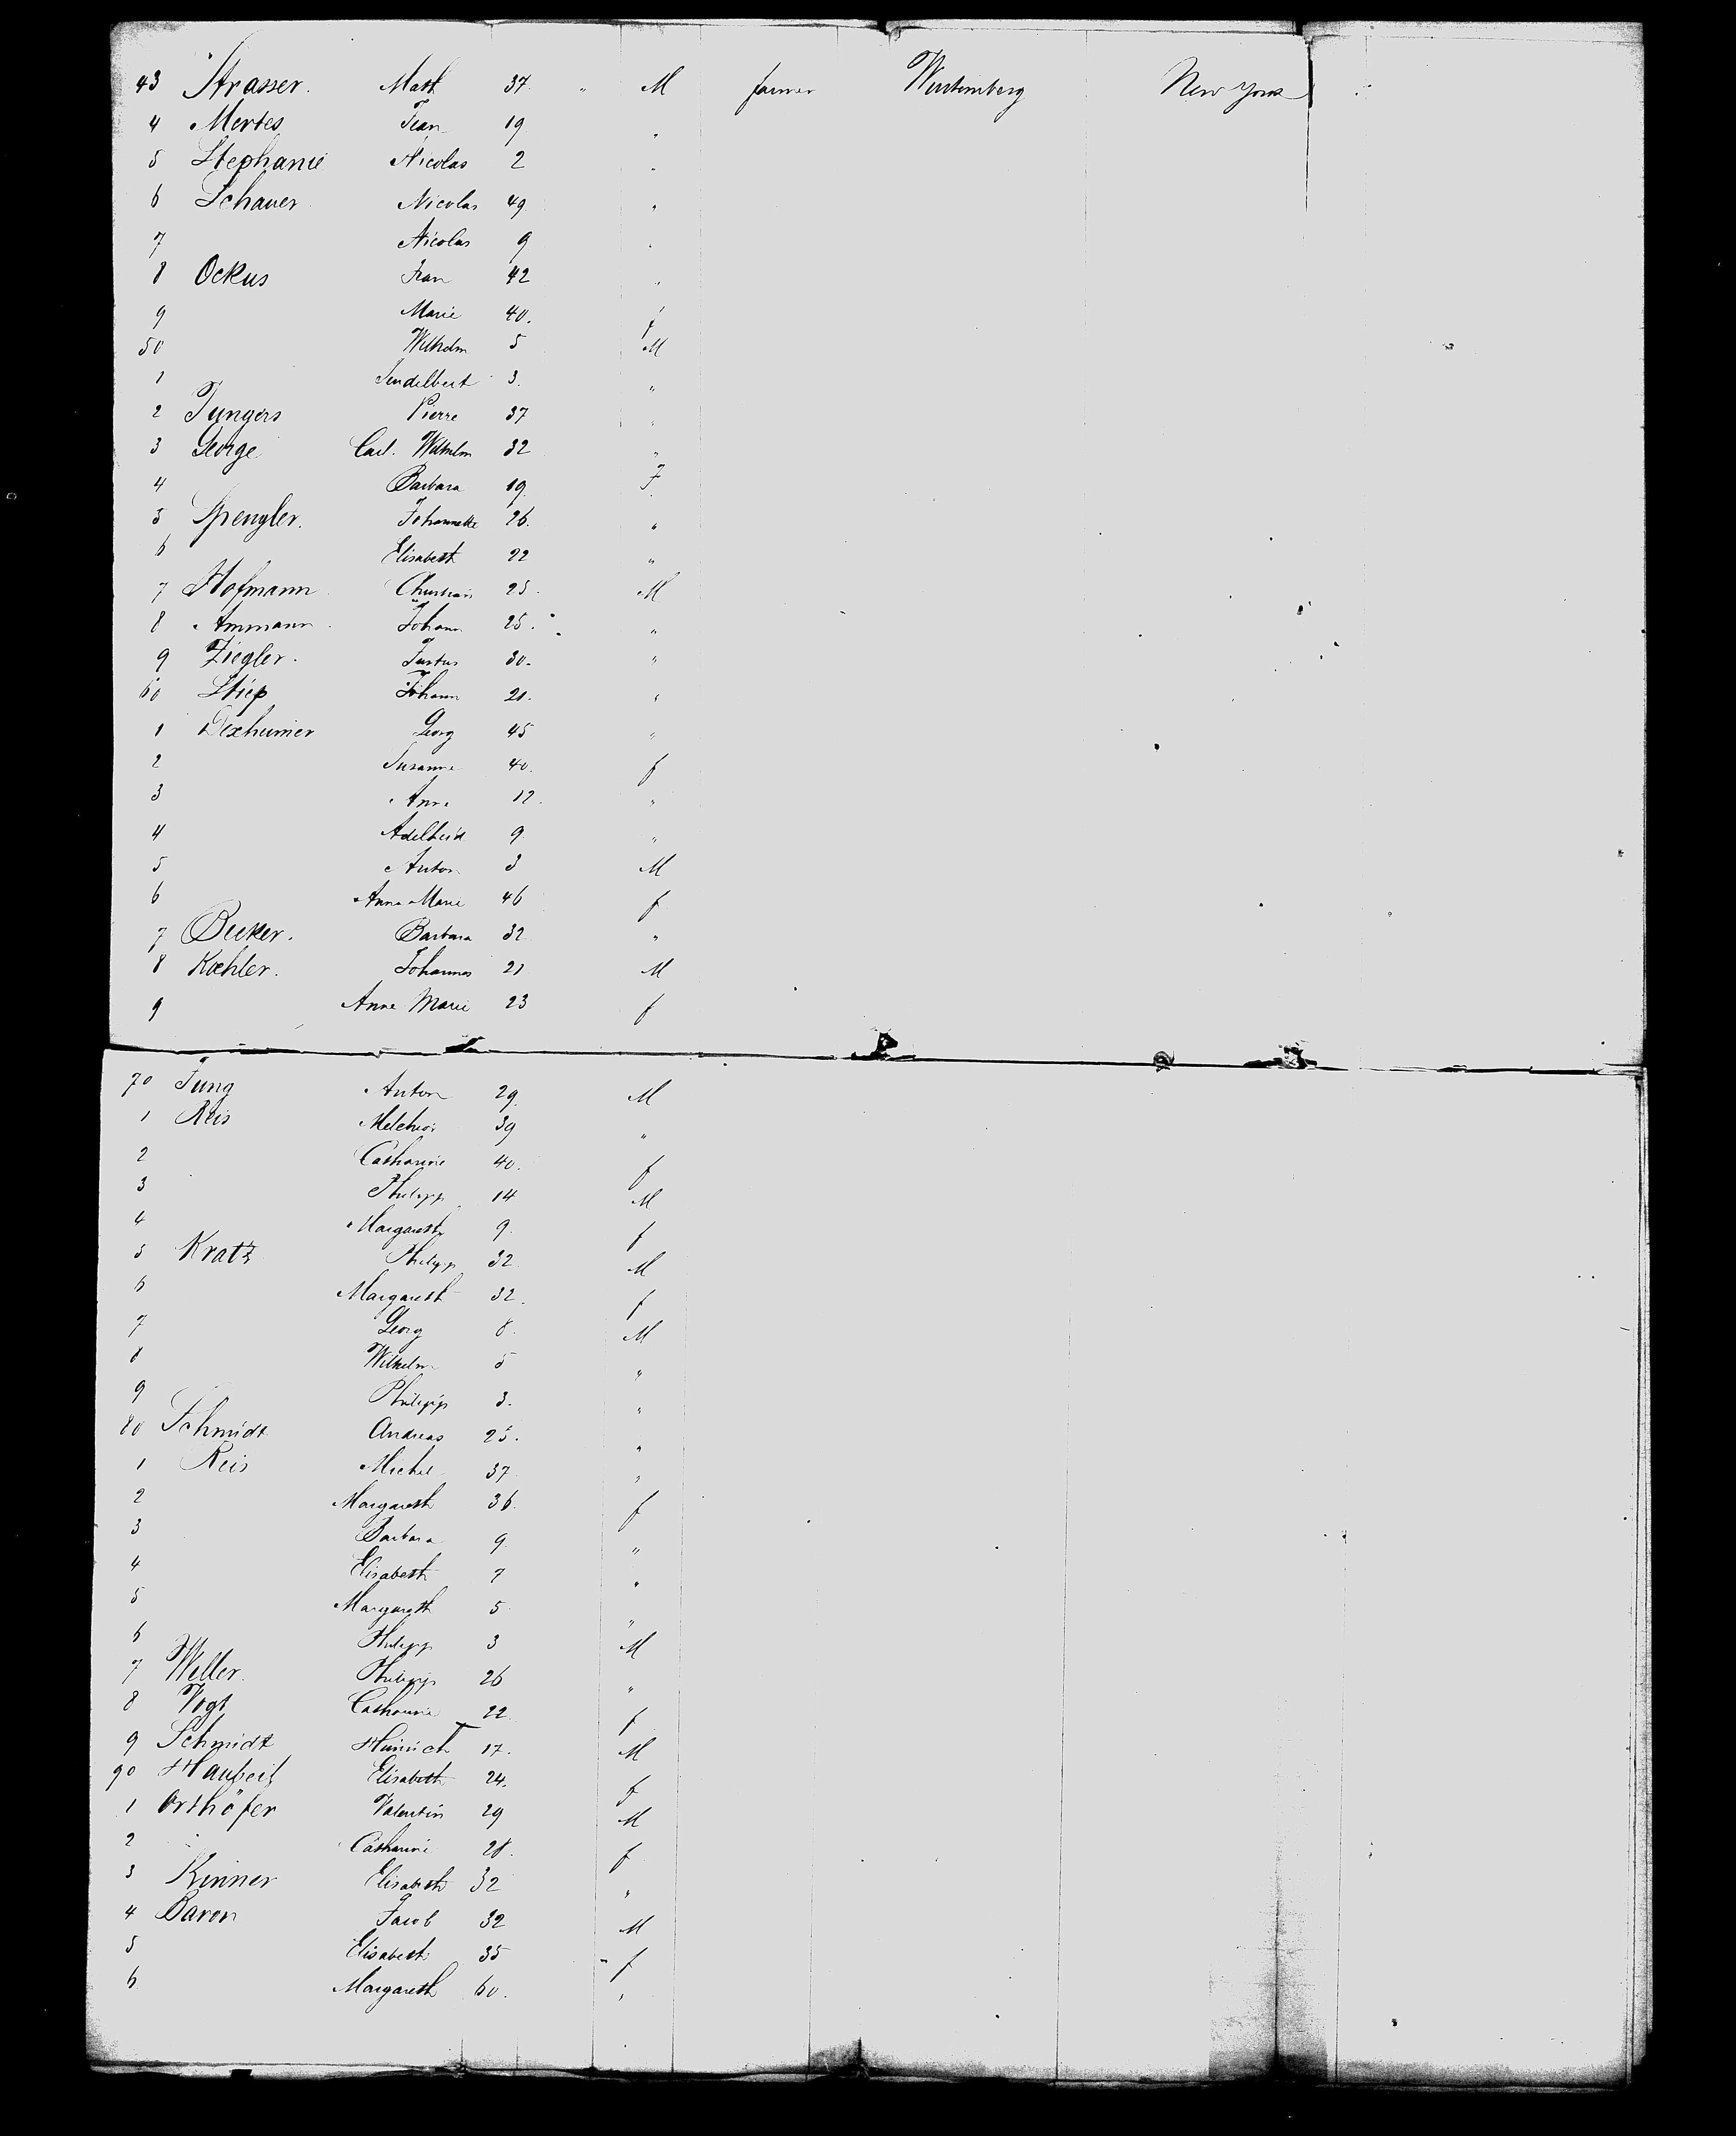 43 Strasser. Math 37. " M farmer Würtemberg New York
4 Mertes Jean 19 "
5 Stephanie Nicolas 2 "
6 Schauer Nicolas 49 "
7 Nicolas 9 "
8 Ockus Jean 42 "
9 Marie 40. f
50 Wilhelm 5 M
1 3. "
2 Jungers Pierre 37 "
3 George Carl. Wilhelm 32 "
4 Barbara 19. F.
5 Spengler. Johannette 26. "
6 Elisabeth 22 "
7 Hofmann Christian 25. M
8 Ammann Johann 25. "
9 Ziegler. Justus 30. "
60 Stiep Johann 21. "
1 Dexheimer Georg 45 "
2 Susanne 40. f
3 Anna 12. "
4 Adelheid 9. "
5 Anton 3 M
6 Anna Marie 46 f
7 Becker. Barbara 32 "
8 Koehler. Johannes 21 M
9 Anne Marie 23 f
70 Jung Anton 29. M
1 Reis Melchior 39 "
2 Catharine 40. f
3 Philipp 14 M
4 Margareth 9. f
5 Kratz Philipp 32 M
6 Margareth 32. f
7 Georg 8. M
8 Wilhelm 5 "
9 Philipp 3. "
80 Schmidt Andreas 25. "
1 Reis Michel 37 "
2 Margareth 36. f
3 Barbara 9. "
4 Elisabeth 7 "
5 Margareth 5 "
6 Philipp 3 M
7 Weller. Philipp 26 "
8 Vogt Catharine 22. f
9 Schmidt Heinrich 17. M
90 Elisabeth 24. f
1 Orthöfer Valentin 29 M
2 Catharine 28. f
3 Kinner Elisabeth 32 "
4 Baron Jacob 32 M
5 Elisabeth 35 " f
6 Margareth 60. "